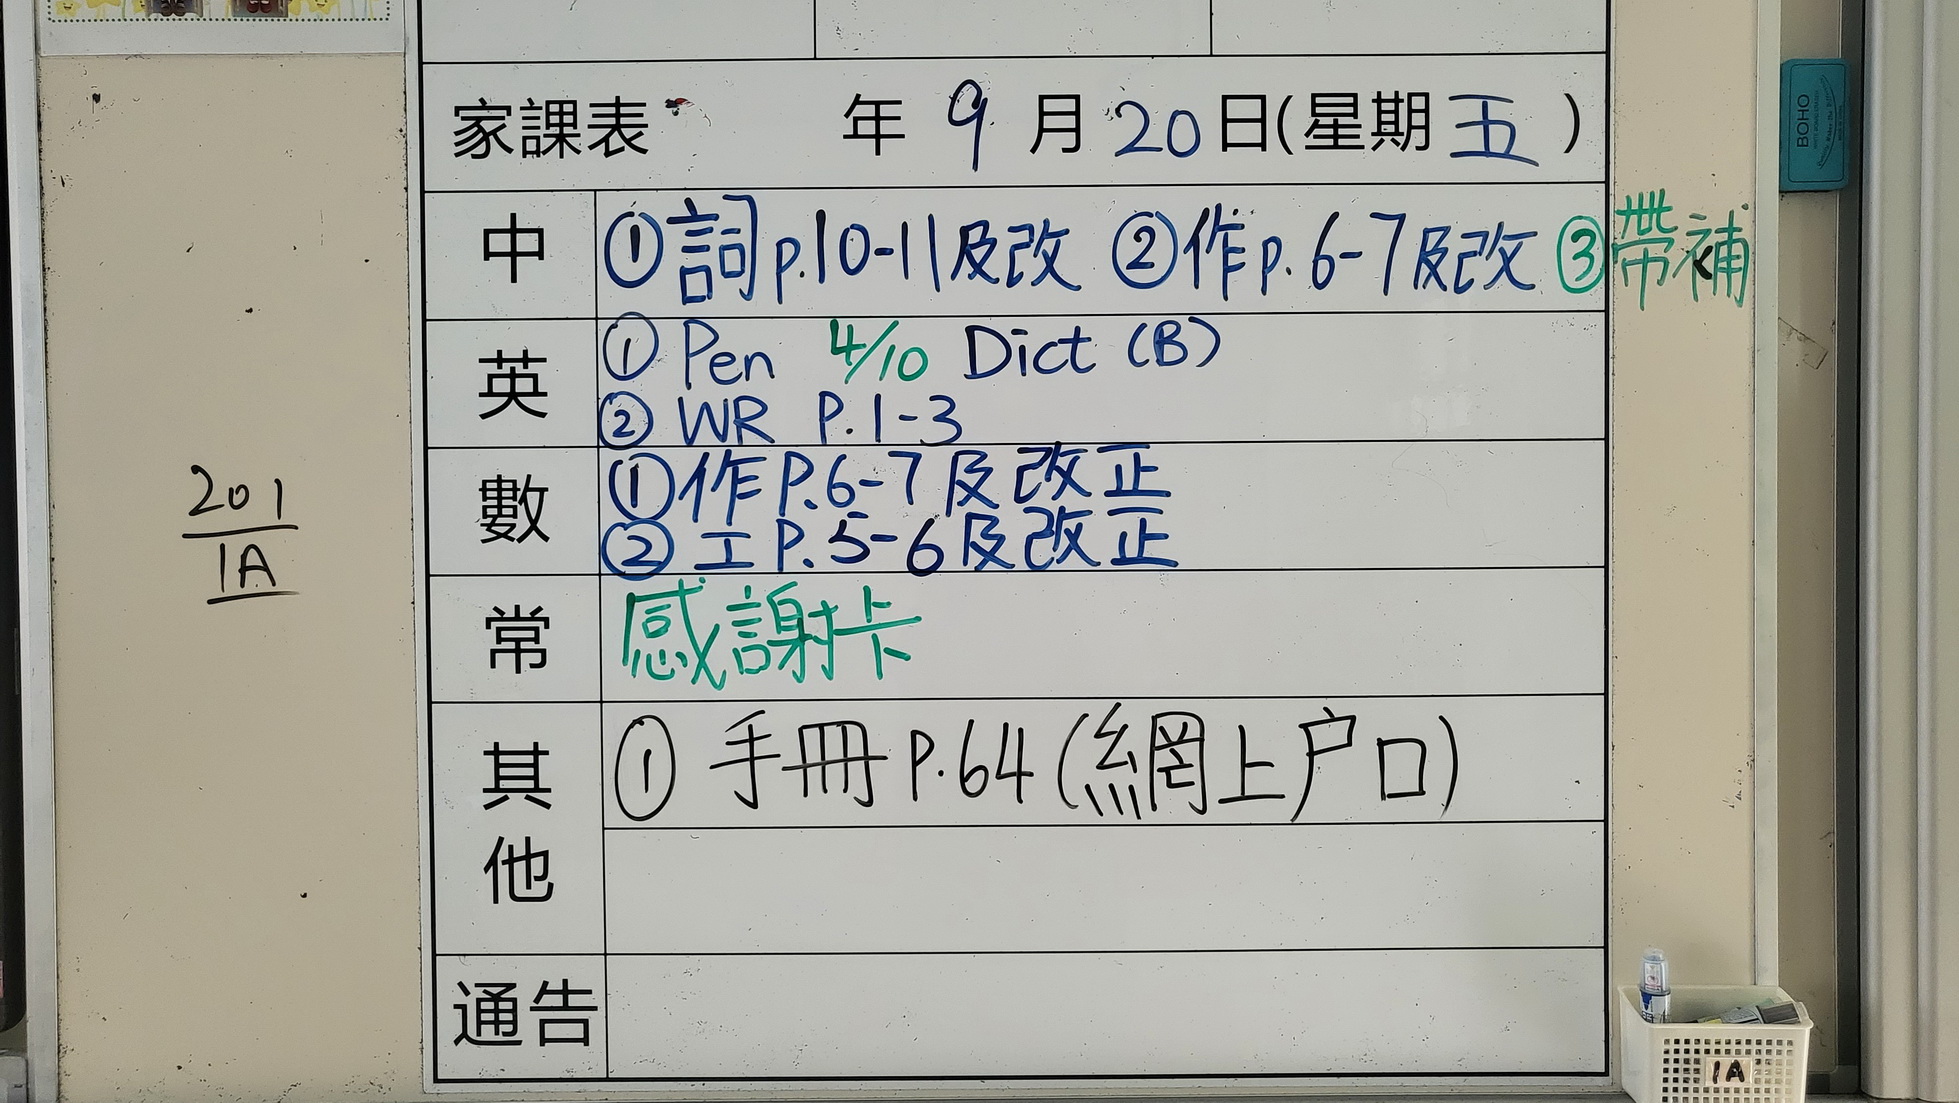 家課表 年 9 月 20 日(星期 五 )
中 ①詞p.10-11及改 ②作p.6-7及改 ③帶補
英 ① Pen 4/10 Dict (B)
② WR P.1-3
數 ①作P.6-7及改正
② 工P.5-6及改正
常 感謝卡
其他 ① 手冊P.64(網上户口)
通告
201
1A
BOHO
1A